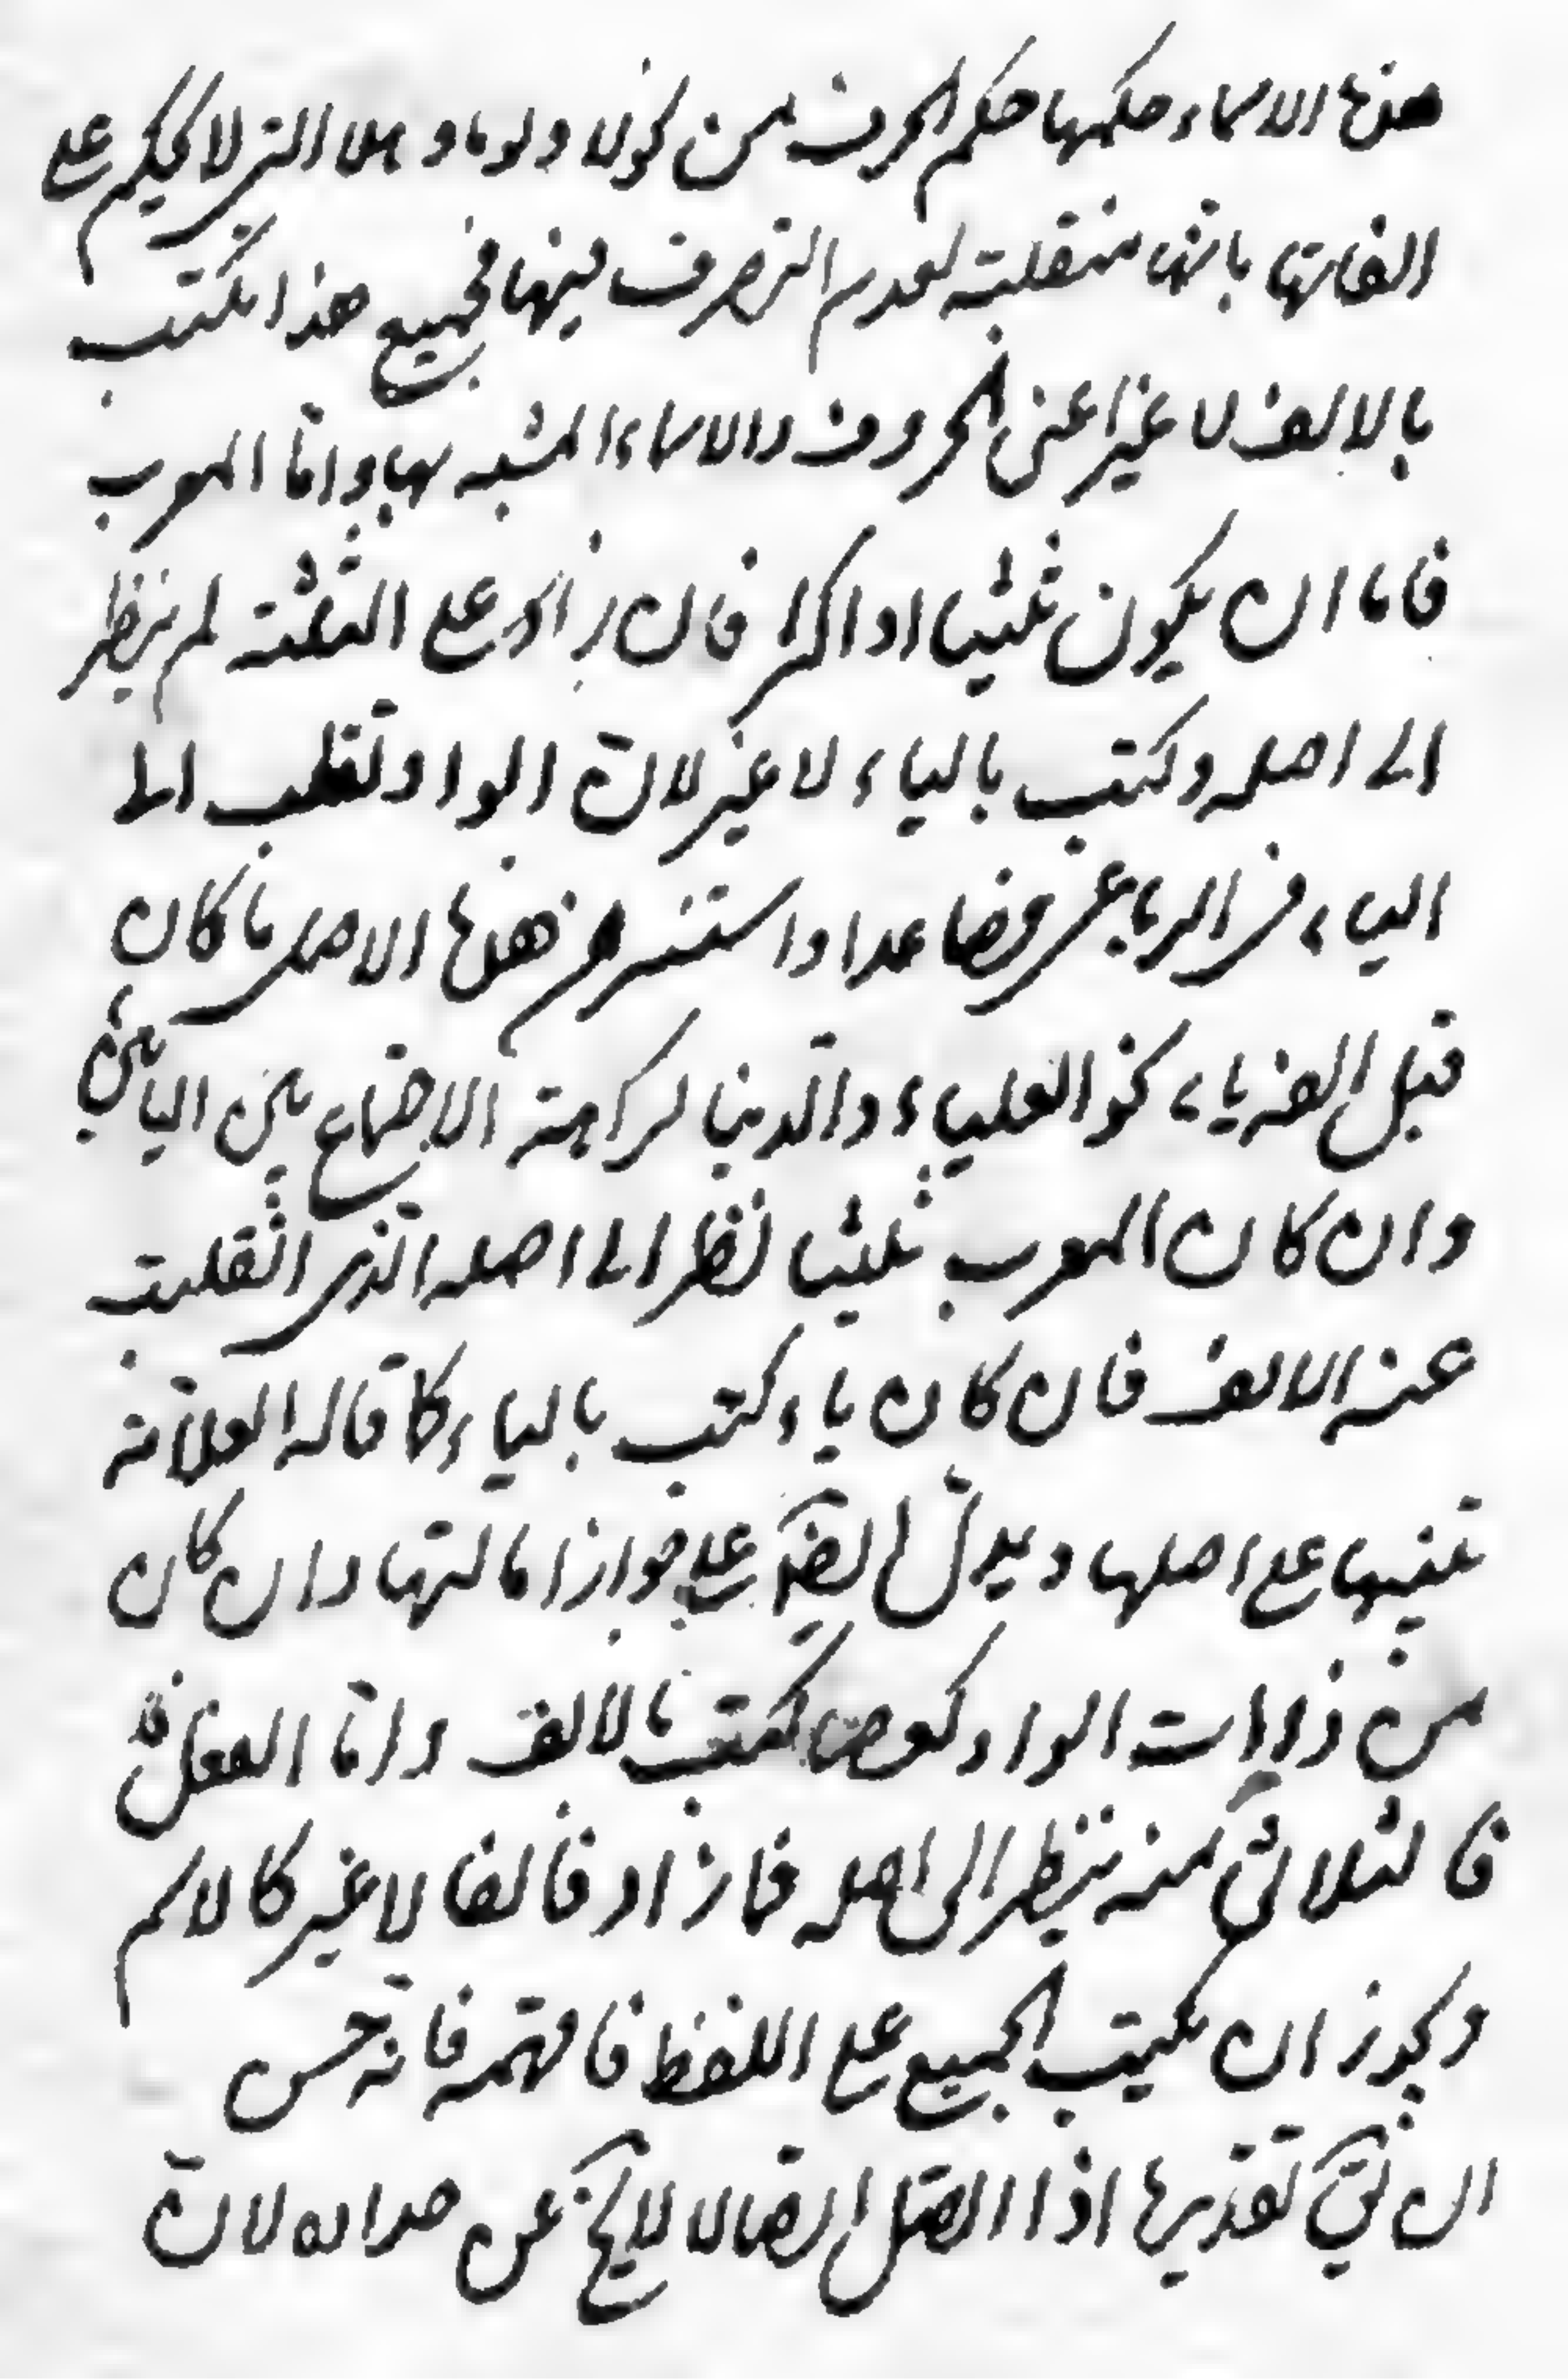 هذه الاسماء حكمها حكم الحرف من نحو لا ولو ما وهلا التى لا يحكم على
الفاتها بانها منقلبة لعدم التصرف فيها فجميع هذا يكتب
بالالف لا غير اعنى الحروف والاسماء المشبه بها واما المعرب
فاما ان يكون ثلثيا او اكثر فان زاد على الثلثة لم ينظر
الى اصله وكتب بالياء لا غير لان الواو تقلب الى
الياء فى الرباعى فصاعدا واستثنى من هذه الاصل ما كان
قبل الفه ياء نحو العلياء والدنيا لكراهة الاجتماع بين اليائين
وان كان المعرب ثلثيا نظر الى اصله الذى انقلبت
عنه الالف فان كان ياء كتب بالياء كما قاله العلامة
تنبيها على اصلها ويدل ايضا على جواز امالتها وان كان
من ذوات الواو كعصا كتب بالالف واما الفعل
فالثلاثى منه ينظر الى اصله فما زاد فالفا لا غير كالاسم
ويجوز ان يكتب الجميع على اللفظ فافهمه فانه حسن
الثانى تقديرها اذا اتصل اتصالا لا يخ عن لان